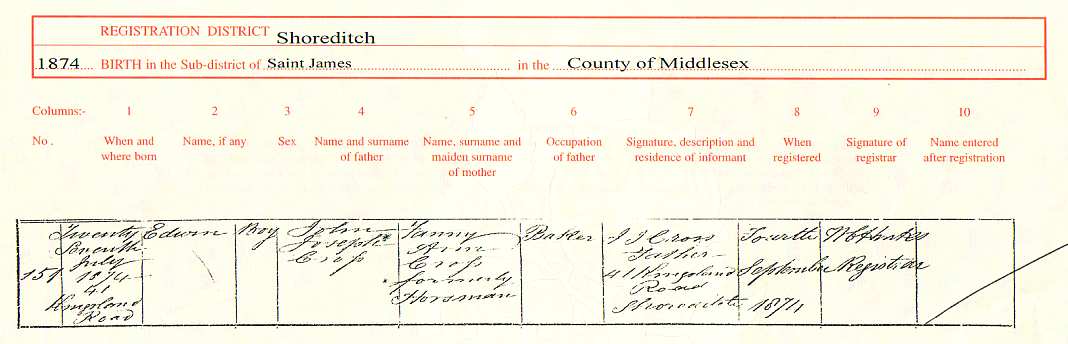 REGISTRATION DISTRICT Shoreditch
1874 BIRTH in the Sub-district of Saint James in the County of Middlesex
Columns:- 1 2 3 4 5 6 7 8 9 10
No. When and where born Name, if any Sex Name and surname of father Name, surname and maiden surname of mother Occupation of father Signature, description and residence of informant When registered Signature of registrar Name entered after registration
151
Twenty
Seventh
July
1874
41
Kingsland
Road
Edwin
Boy
John
Joseph
Cross
Fanny
Ann
Cross
formerly
Horsman
Baker
J J Cross
Father
41 Kingsland
Road
Shoreditch
Fourth
September
1874
Registrar